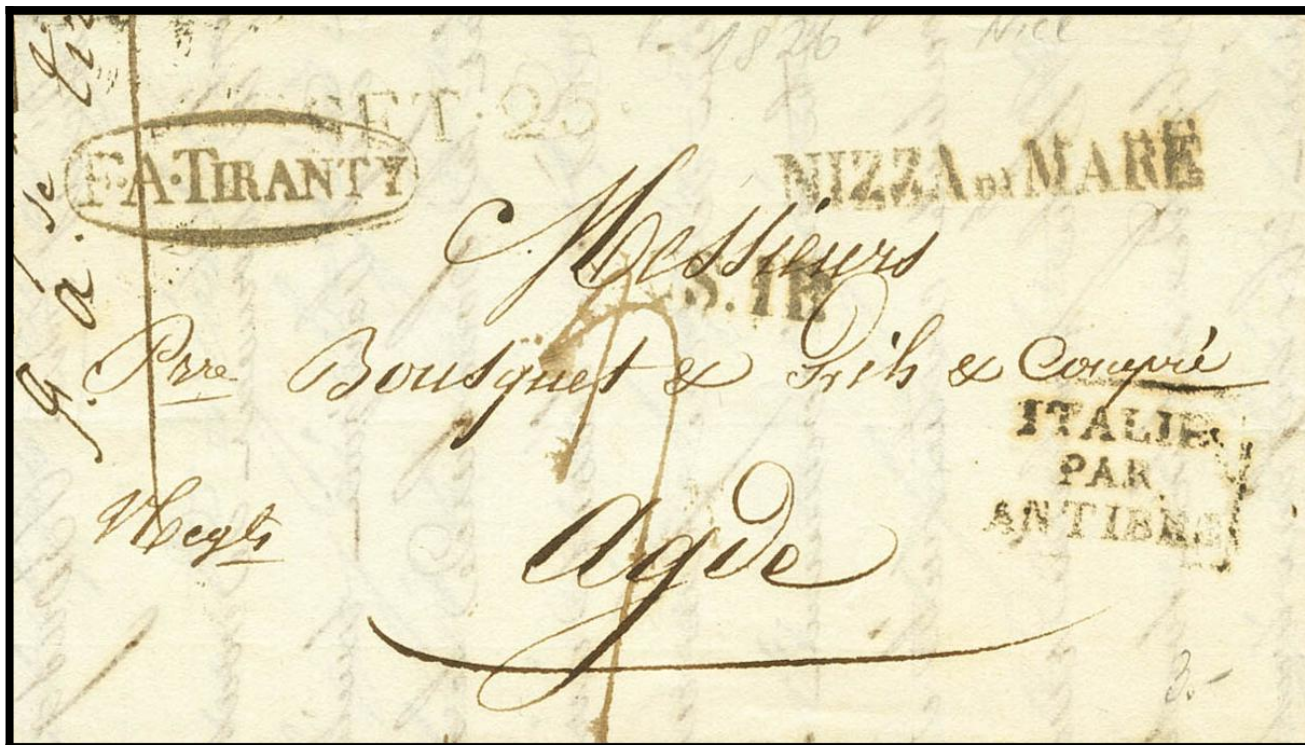 1826 Nice
SET·25·
F·A·TIRANTY
NIZZA DI MARE
Messieurs
S.1B
Prre Bousquet & Fils & Compie
ITALIE
PAR
ANTIBES
Negts
Agde